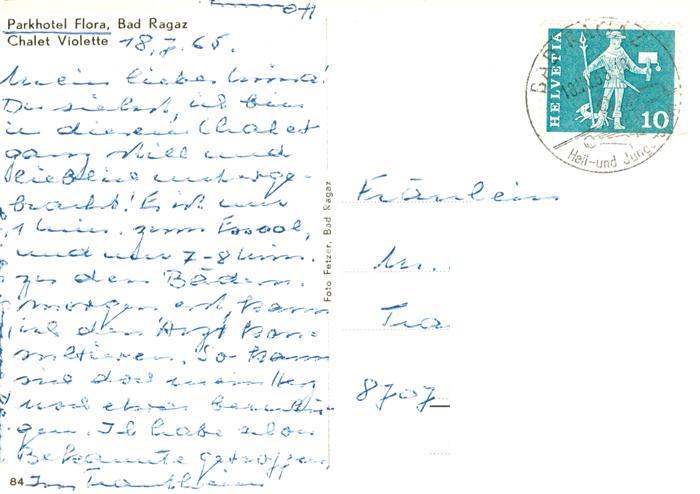 Parkhotel Flora, Bad Ragaz
Chalet Violette 18.7.65.
Mein liebes
Du siehst, ich bin
in diesem Chalet
ganz still und
lieblich unterge-
bracht! Es ist nur
1 Min. zum Essaal,
und nur 7-8 Min.
zu den Bädern.
Morgen erst kann
ich den Arzt kon-
sultieren. So kann
sich das mein Herz
noch etwas beruhi-
gen. Ich habe schon
Bekannte getroffen,
84
Foto Fetzer, Bad Ragaz
HELVETIA
10
BAD RAGAZ
Heil- und
Fräulein
M.
8707